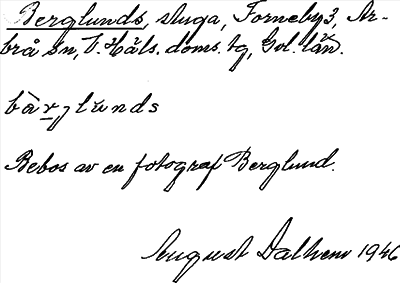 Berglunds, stuga, Forneby 3, Ar-
brå sn, V. Häls. doms. tg, Gvl. län.
bä̀r̲jlùnds
Bebos av en fotograf Berglund.
August Dalhem 1946